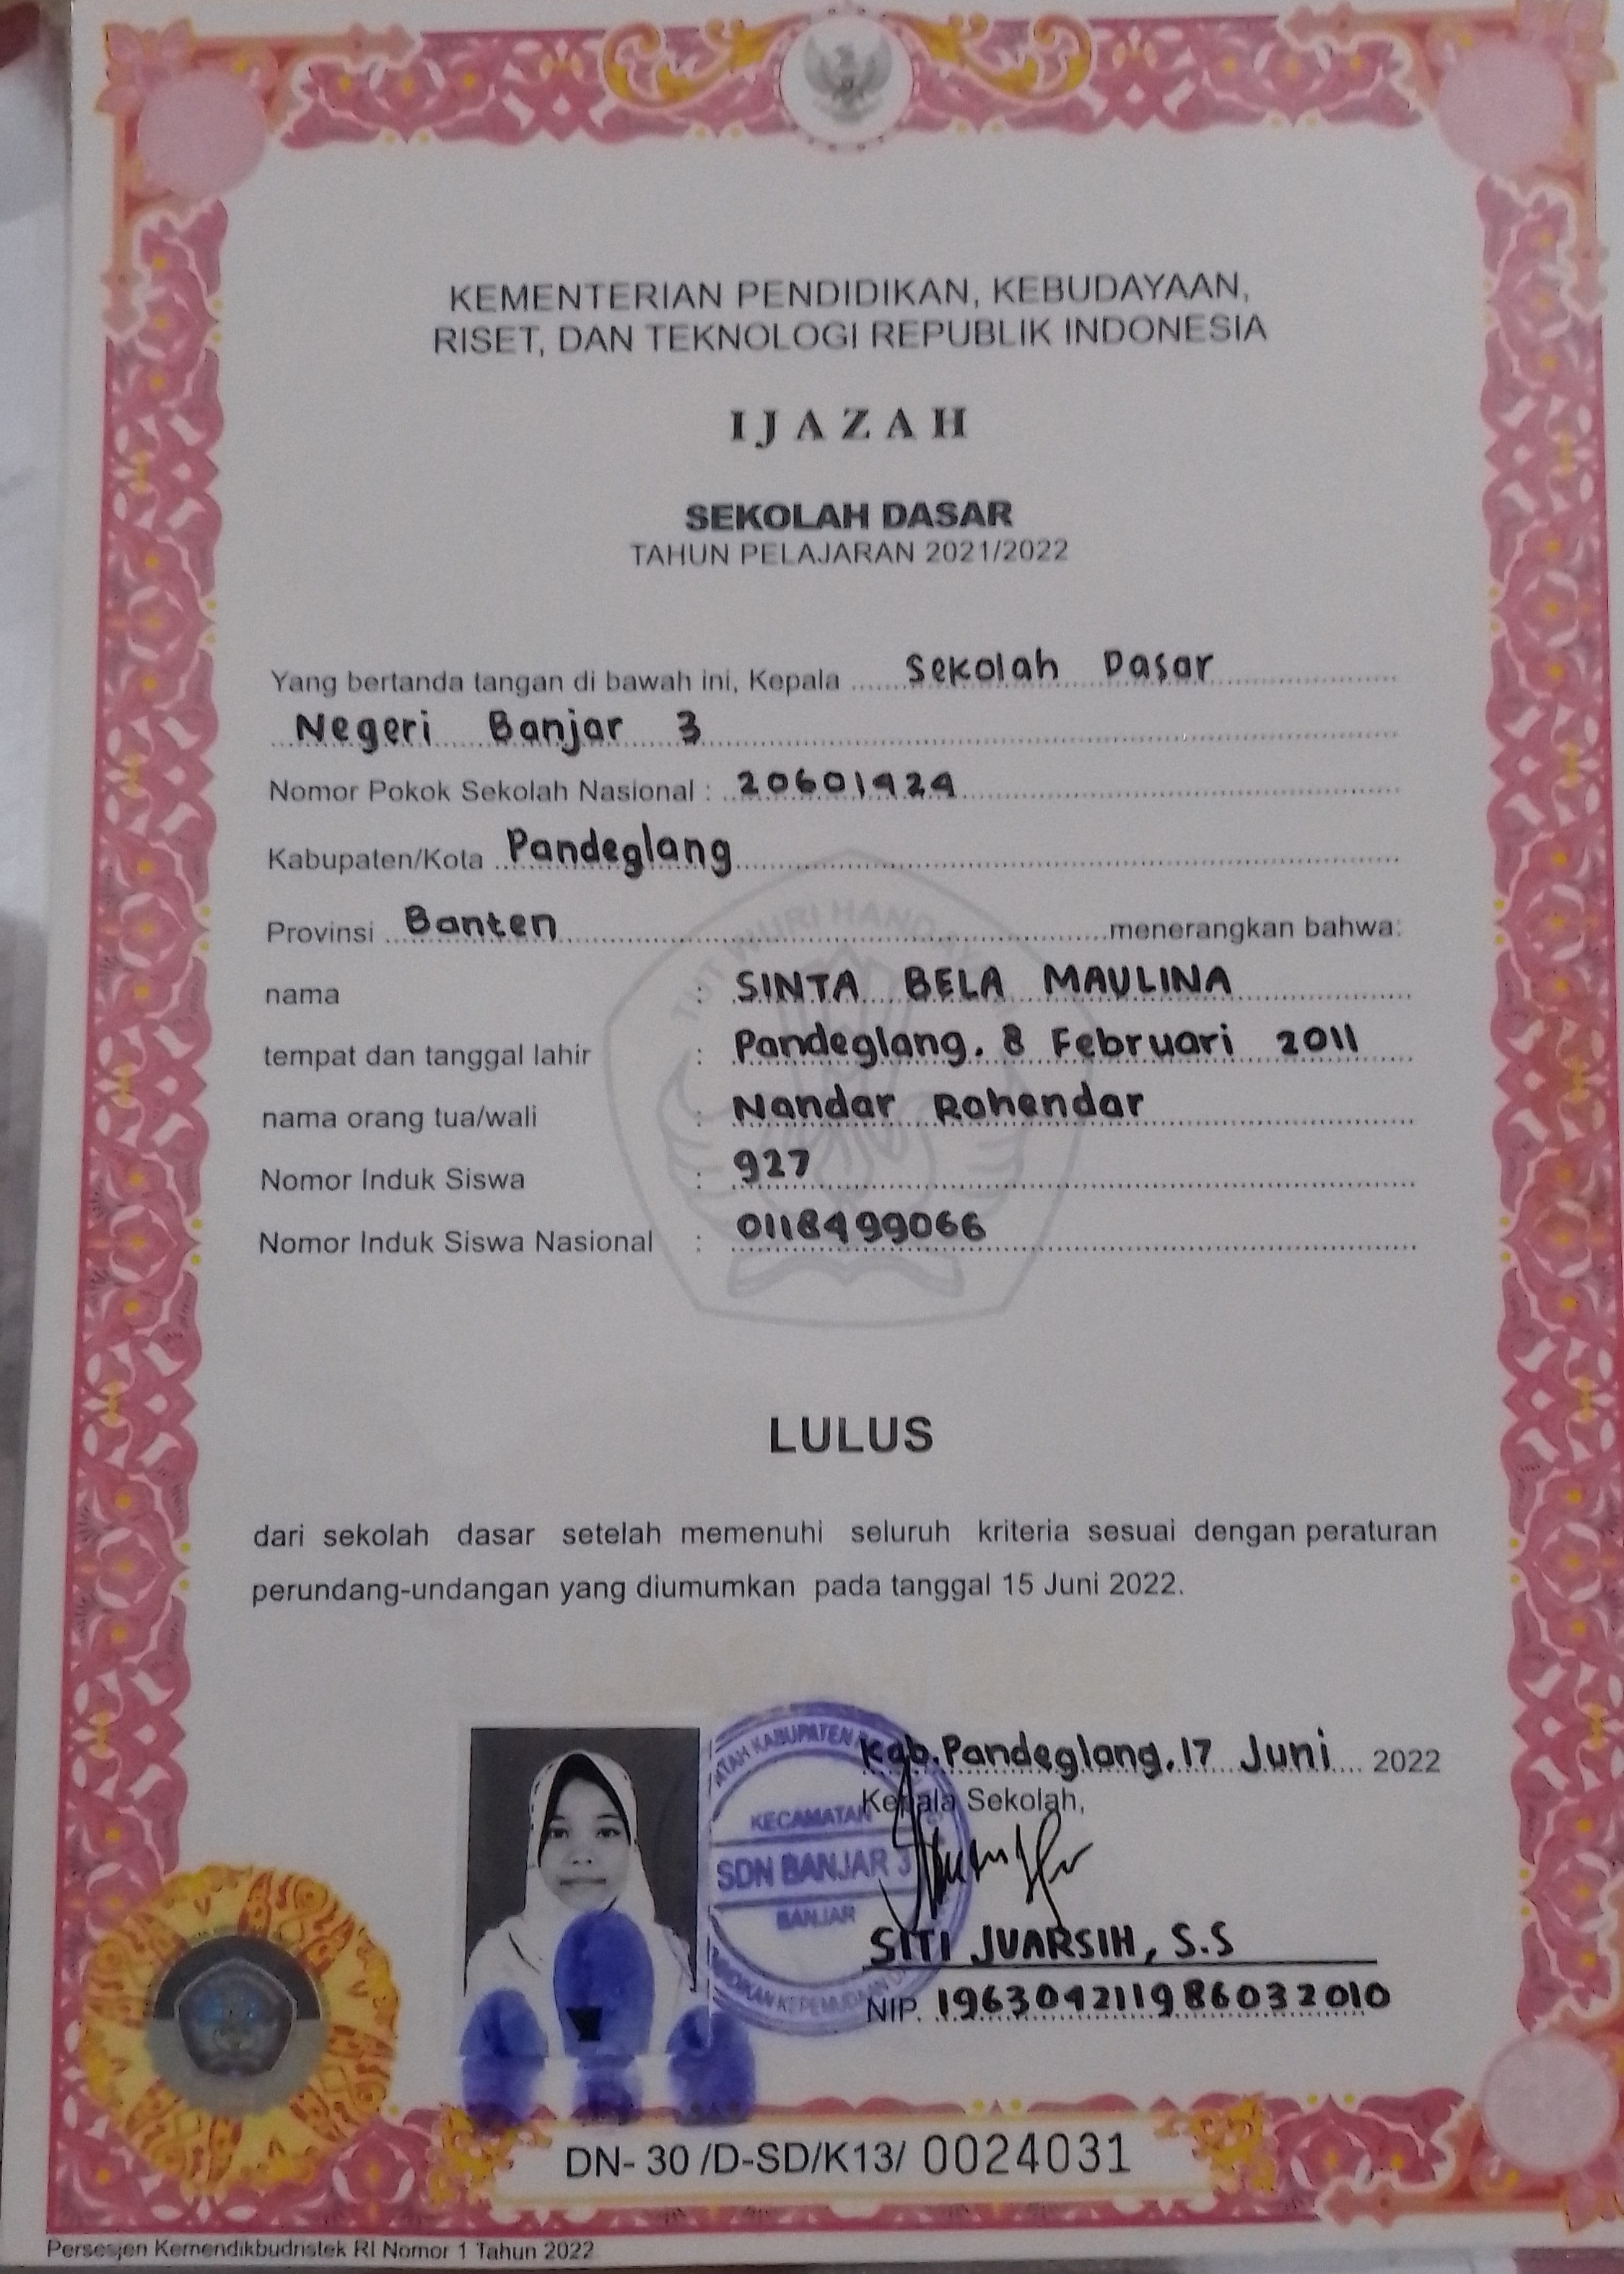 KEMENTERIAN PENDIDIKAN, KEBUDAYAAN,
RISET, DAN TEKNOLOGI REPUBLIK INDONESIA
IJAZAH
SEKOLAH DASAR
TAHUN PELAJARAN 2021/2022
Yang bertanda tangan di bawah ini, Kepala Sekolah Dasar
Negeri Banjar 3
Nomor Pokok Sekolah Nasional : 20601424
Kabupaten/Kota Pandeglang
Provinsi Banten menerangkan bahwa:
nama : SINTA BELA MAULINA
tempat dan tanggal lahir : Pandeglang, 8 Februari 2011
nama orang tua/wali : Nandar Rohendar
Nomor Induk Siswa : 927
Nomor Induk Siswa Nasional : 0118499066
TUT WURI
LULUS
dari sekolah dasar setelah memenuhi seluruh kriteria sesuai dengan peraturan
perundang-undangan yang diumumkan pada tanggal 15 Juni 2022.
Kab. Pandeglang, 17 Juni 2022
Kepala Sekolah,
KABUPATEN
KECAMATAN
SDN BANJAR 3
BANJAR
SITI JUARSIH, S.S
NIP. 196304211986032010
DN- 30 /D-SD/K13/ 0024031
Persesjen Kemendikbudristek RI Nomor 1 Tahun 2022